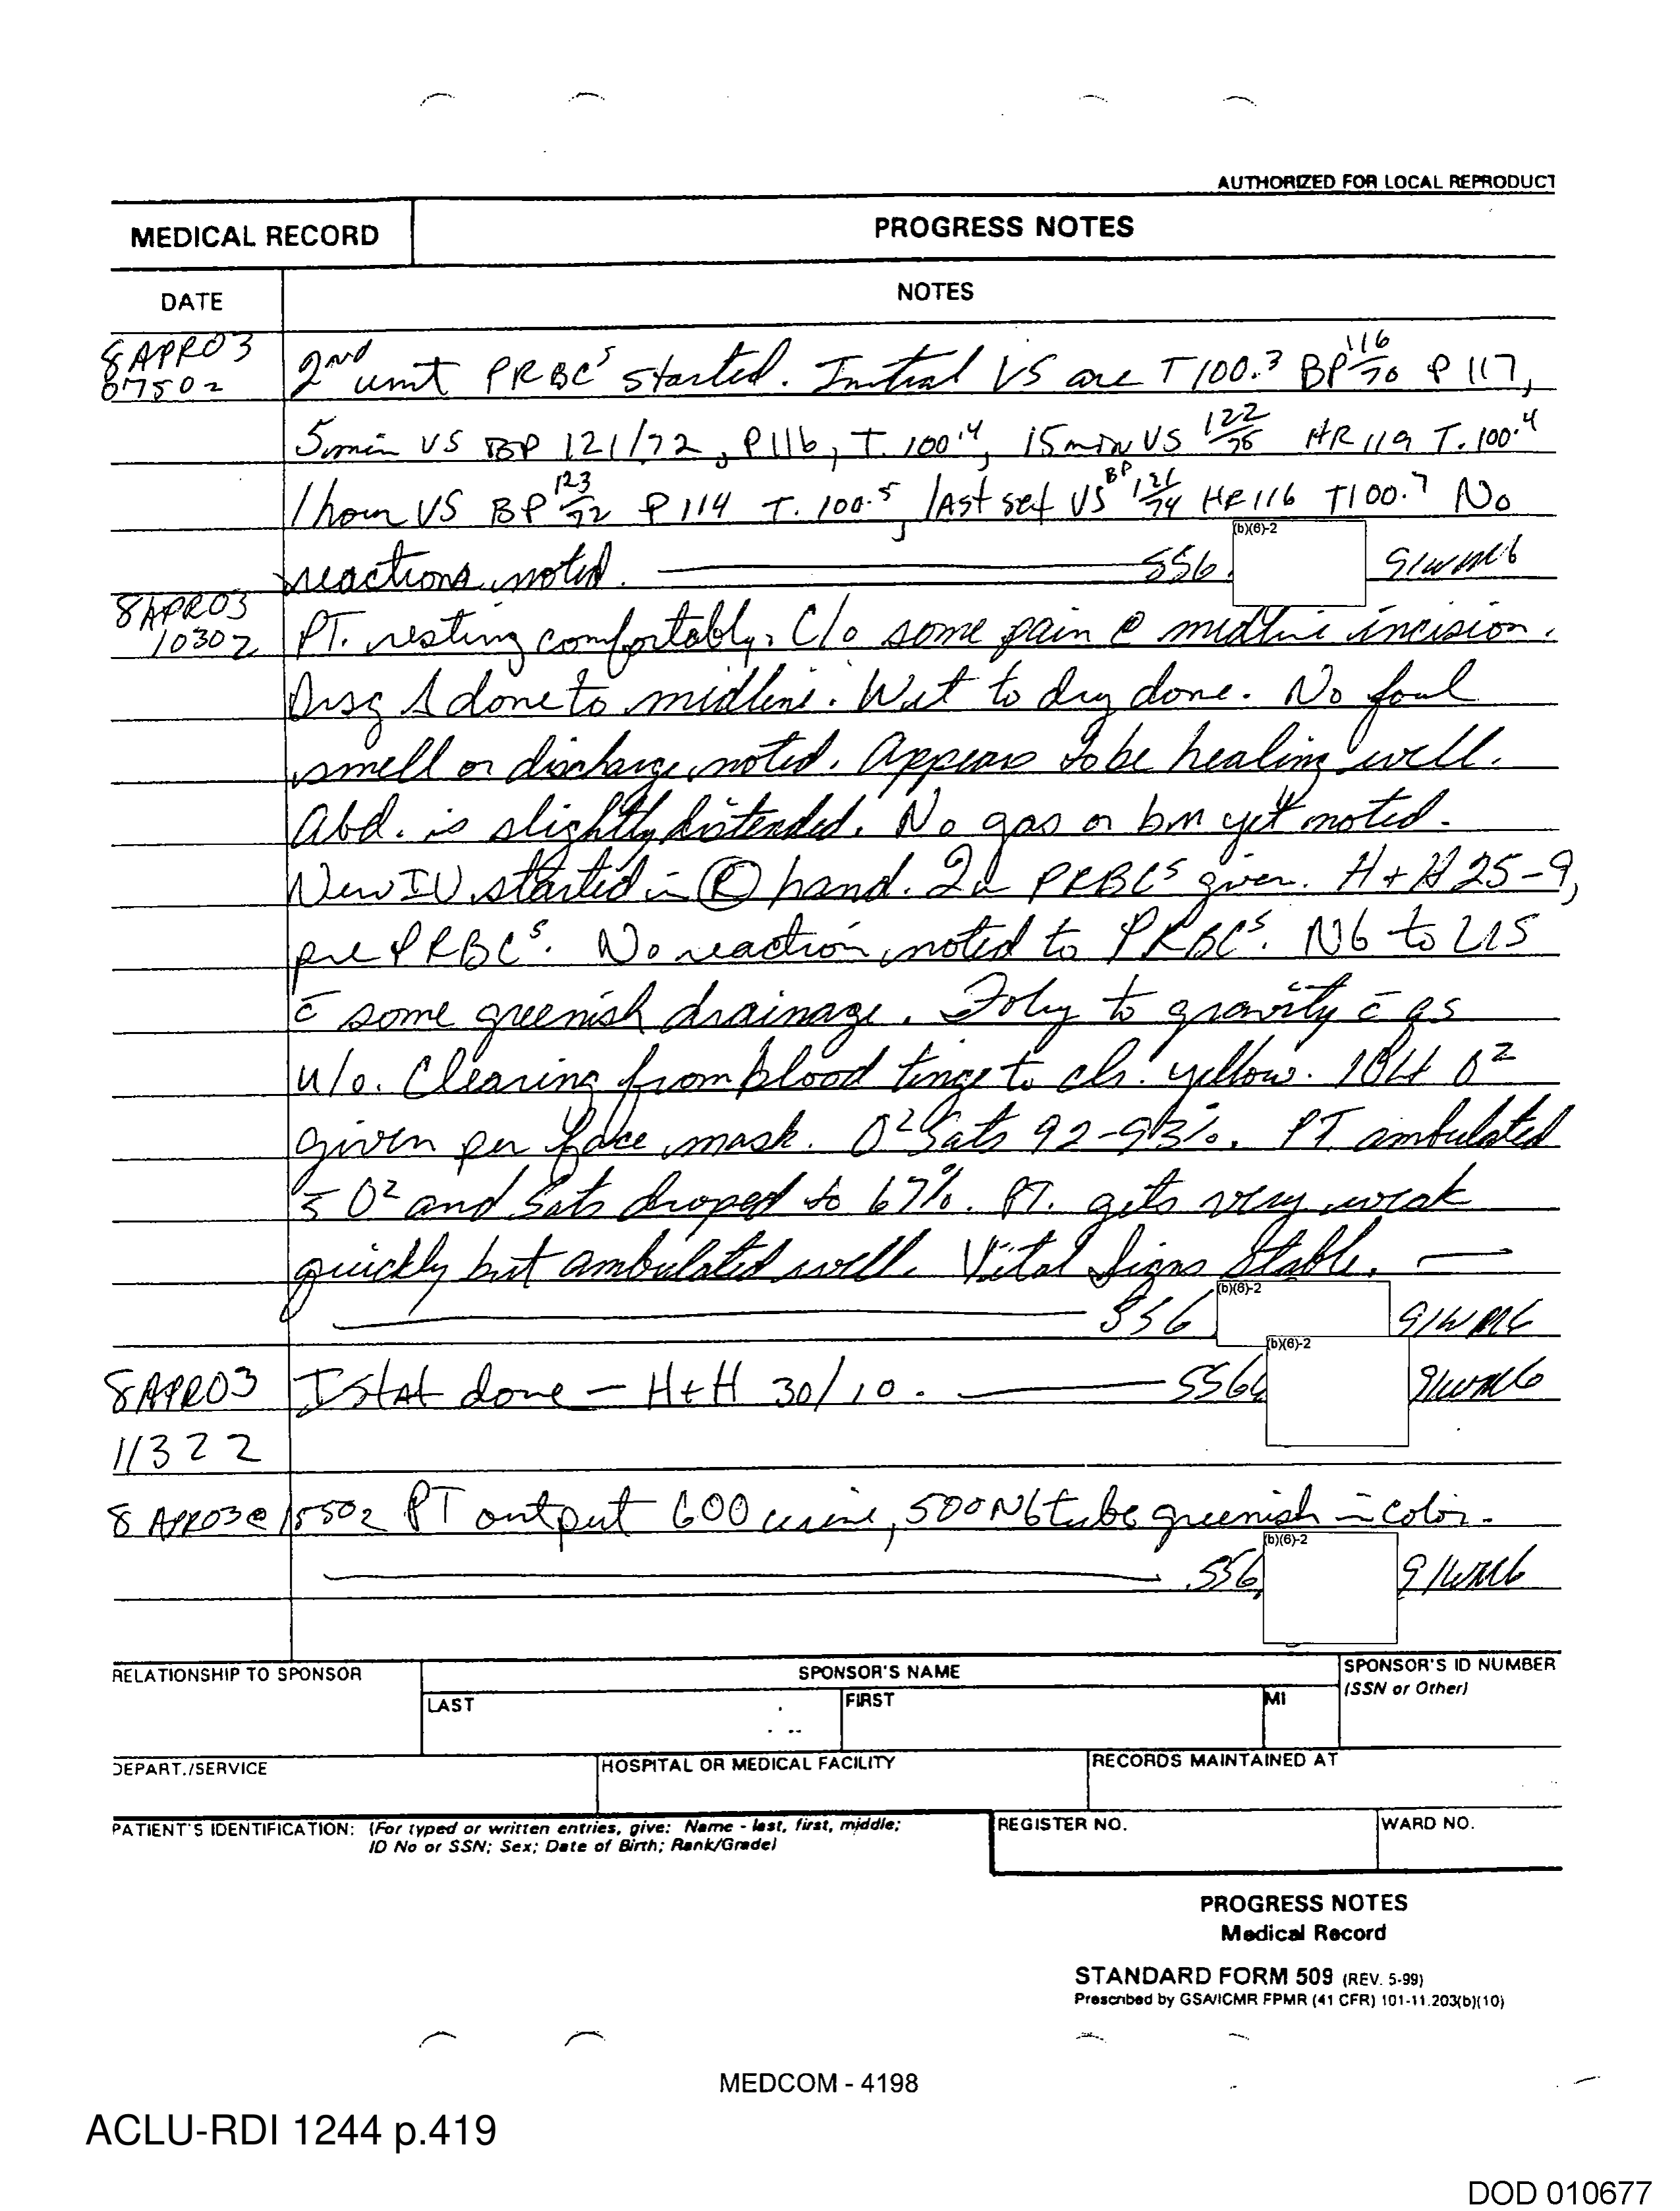 AUTHORIZED FOR LOCAL REPRODUCT
MEDICAL RECORD
PROGRESS NOTES
DATE
NOTES
8APR03 2nd unit PRBCs started. Initial VS are T100.3 BP 116/70 P 117,
0750z
5min VS BP 121/72, P116, T. 100.4, 15min VS 122/75 HR 119 T. 100.4
1 hour VS BP 123/72 P 114 T. 100.5, last set VS BP 121/74 HR 116 T100.7 No
reactions noted. SSG (b)(6)-2 91WM6
8APR03
1030z PT. resting comfortably. C/o some pain @ midline incision.
Drsg Δ done to midline. Wet to dry done. No foul
smell or discharge noted. Appears to be healing well.
Abd. is slightly distended. No gas or bm yet noted.
New IV started in Ⓡ hand. 2u PRBCs given. H+H 25-9,
pre PRBCs. No reaction noted to PRBCs. NG to LIS
c̄ some greenish drainage. Foley to gravity c̄ qs
u/o. Clearing from blood tinge to clr. yellow. O2
given per face mask. O2 Sats 92-93%. PT ambulated
s̄ O2 and Sats droped to 67%. PT. gets very weak
quickly but ambulated well. Vital Signs Stable.
SSG (b)(6)-2 91WM6
8APR03 IStat done - H+H 30/10. SSG (b)(6)-2 91WM6
1132z
8APR03 @ 1550z PT output 600 urine, 500 NG tube greenish in color.
SSG (b)(6)-2 91WM6
RELATIONSHIP TO SPONSOR
SPONSOR'S NAME
SPONSOR'S ID NUMBER
(SSN or Other)
LAST
FIRST
MI
DEPART./SERVICE
HOSPITAL OR MEDICAL FACILITY
RECORDS MAINTAINED AT
PATIENT'S IDENTIFICATION: (For typed or written entries, give: Name - last, first, middle;
ID No or SSN; Sex; Date of Birth; Rank/Grade)
REGISTER NO.
WARD NO.
PROGRESS NOTES
Medical Record
STANDARD FORM 509 (REV. 5-99)
Prescribed by GSA/ICMR FPMR (41 CFR) 101-11.203(b)(10)
MEDCOM - 4198
ACLU-RDI 1244 p.419
DOD 010677